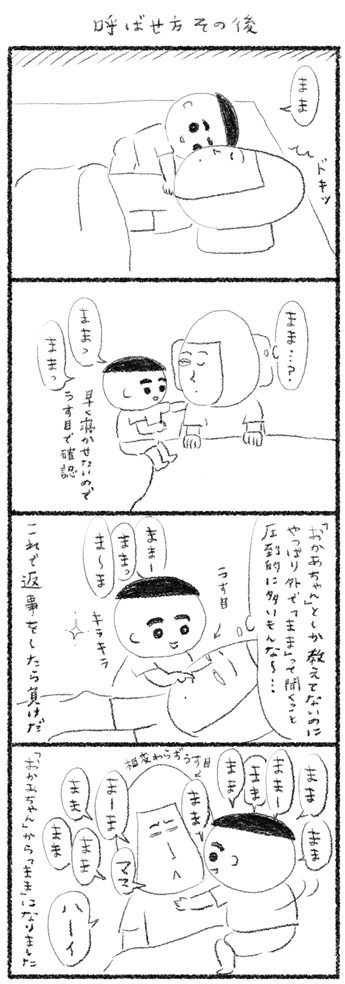 呼ばせ方その後
まま
ドキッ
まま…?
ままっ
ままっ
早く寝かせたいので
うす目で確認
「おかあちゃん」としか教えてないのに
やっぱり外で「まま」って聞くこと
圧倒的に多いもんな〜…
うす目
ままー
ままっ
ま〜ま
キラキラ
これで返事をしたら負けだ
相変わらずうす目
まま
まま
ままー
まま
まま
まま
ままー
まーま
ママ
まま
まま
まま
ハーイ
「おかあちゃん」から「まま」になりました